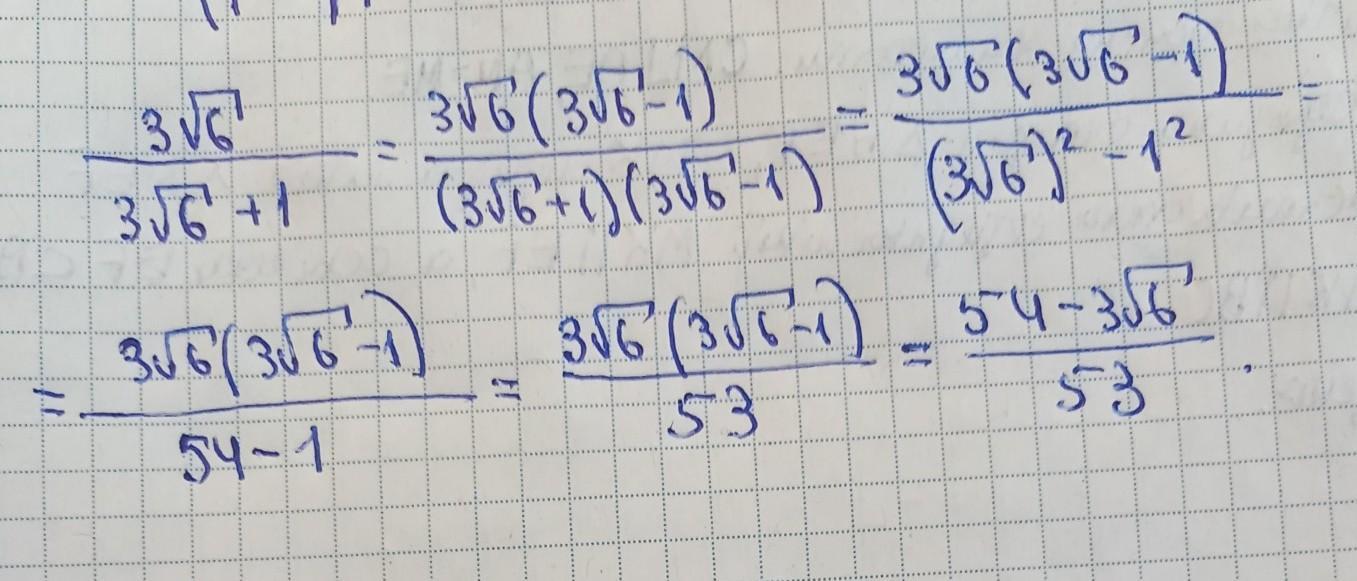 3√6 / (3√6 + 1) = 3√6 (3√6 - 1) / ((3√6 + 1)(3√6 - 1)) = 3√6 (3√6 - 1) / ((3√6)² - 1²) =
= 3√6 (3√6 - 1) / (54 - 1) = 3√6 (3√6 - 1) / 53 = (54 - 3√6) / 53 .